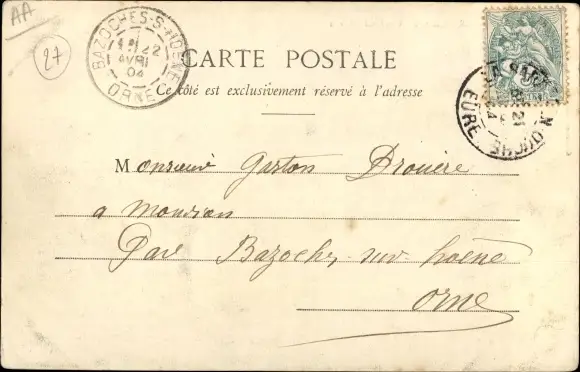 AA
27
BAZOCHES-S-HOENE
22
AVRIL
04
ORNE
CARTE POSTALE
Ce côté est exclusivement réservé à l'adresse
21
EURE
Monsieur Gaston Drouère
a monsion
Par Bazoches sur hoëne
Orne